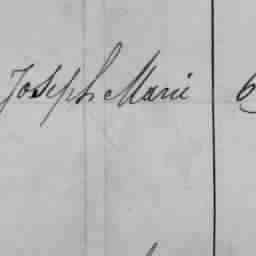 Joseph Marie 6